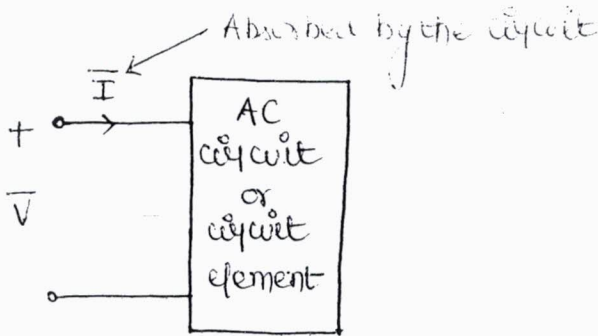 Absorbed by the circuit
I
+
V
AC
circuit
or
circuit
element